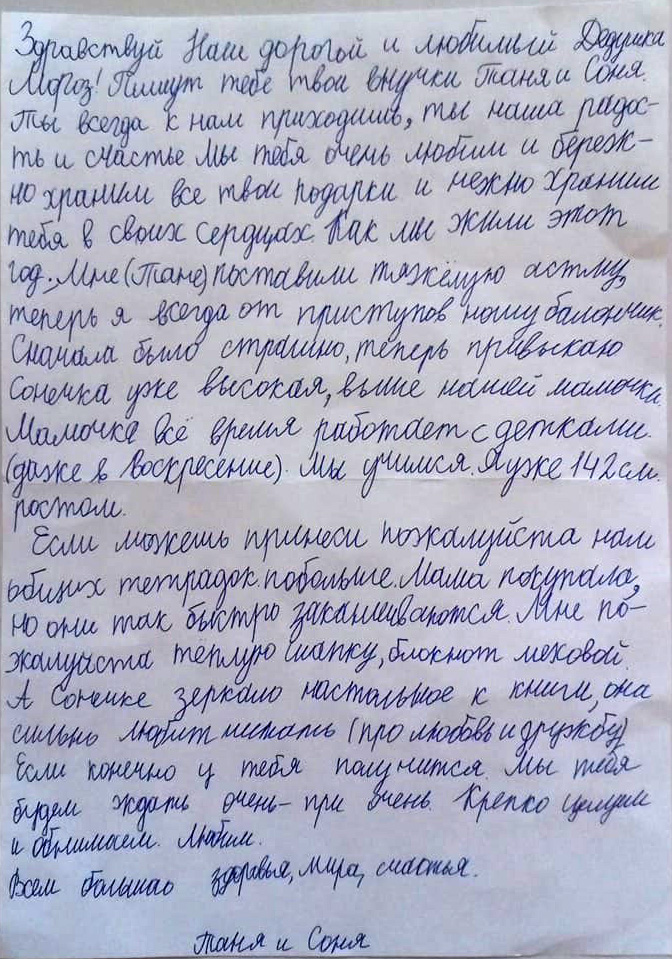 Здравствуй Наш дорогой и любимый Дедушка
Мороз! Пишут тебе твои внучки Таня и Соня.
Ты всегда к нам приходишь, ты наша радос-
ть и счастье Мы тебя очень любим и береж-
но храним все твои подарки и нежно храним
тебя в своих сердцах. Как мы жили этот
год. Мне (Тане) поставили тяжёлую астму,
теперь я всегда от приступов ношу балончик.
Сначала было страшно, теперь привыкаю
Сонечка уже высокая, выше нашей мамочки.
Мамочка всё время работает с детками.
(даже в Воскресение). Мы учимся. Я уже 142 см.
ростом.
Если можешь принеси пожалуйста нам
общих тетрадок побольше. Мама покупала,
но они так быстро заканчиваются. Мне по-
жалуйста тёплую шапку, блокнот меховой.
А Сонечке зеркало настольное и книги, она
сильно любит читать (про любовь и дружбу)
Если конечно у тебя получится. Мы тебя
будем ждать очень-при очень. Крепко целуем
и обнимаем. Любим.
Всем большао здоровья, мира, счастья.
Таня и Соня